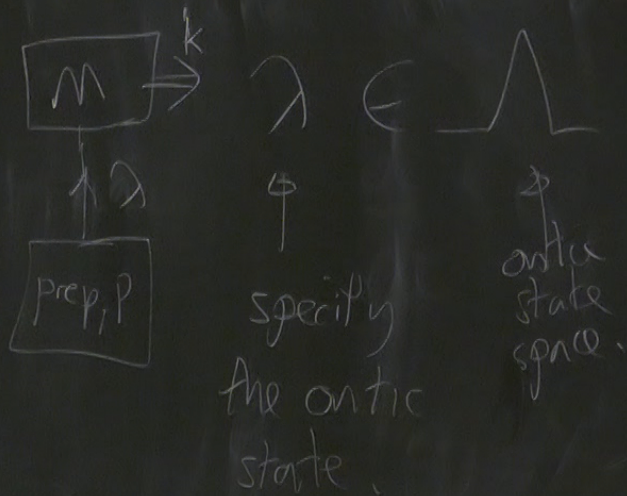 k
m
λ ∈ Λ
λ
prep, P
specify
the ontic
state.
ontic
state
space.